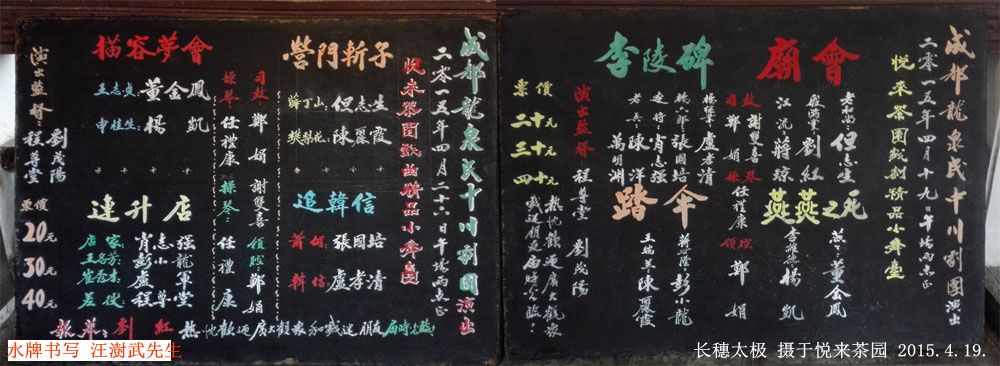 成都龍泉民中川劇團演出
二零一五年四月二十六日午場兩点正
悅來茶園戲曲精品小舞臺
營門斬子
薛丁山：但志生
樊梨花：陳麗霞
追韓信
蕭何：張國培
韓信：盧孝清
司鼓：鄭娟 謝雙喜
領腔：鄭娟
操琴：任禮康
操琴：任禮康
描容夢會
王志貞：董金鳳
申桂生：楊凱
連升店
店家：肖志强
王名芳：彭小龍
崔老爺：盧軍
差役：程尊堂
演出監督：程尊堂 劉茂陽
票價
20元
30元
40元
報幕：劉紅
熱忱歡迎廣大觀衆和戲迷朋友屆時光臨！
水牌书写 汪澍武先生
成都龍泉民中川劇團演出
二零一五年四月十九日午場兩点正
悅來茶園戲劇精品小舞堂
廟會
但志生
劉紅
江流：蔣琼
司鼓：謝雙喜
鄭娟
操琴：任禮康
領腔：鄭娟
燕燕之死
燕燕：董金鳳
李維德：楊凱
李陵碑
楊繼業：盧孝清
楊七郎：張國培
肖志强
老軍：陳洋
萬明洲
踏伞
蔣世隆：彭小龍
王瑞蘭：陳麗霞
演出監督：程尊堂 劉茂陽
票價
二十元
三十元
四十元
熱忱歡迎廣大觀衆
戲迷朋友屆時光臨！
长穗太极 摄于悦来茶园 2015.4.19.